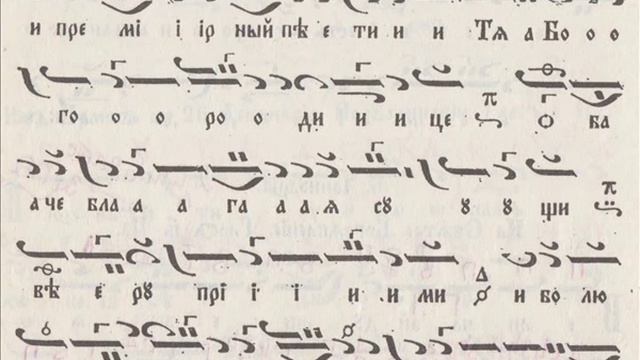 и пре мі і ір ный пѣ е ти и и Тѧ а Бо о о
го о о ро о ди и и це ва
а че бла а а га а а ѧ су у у у щи
вѣ і ру прі і і и и ми и бо лю